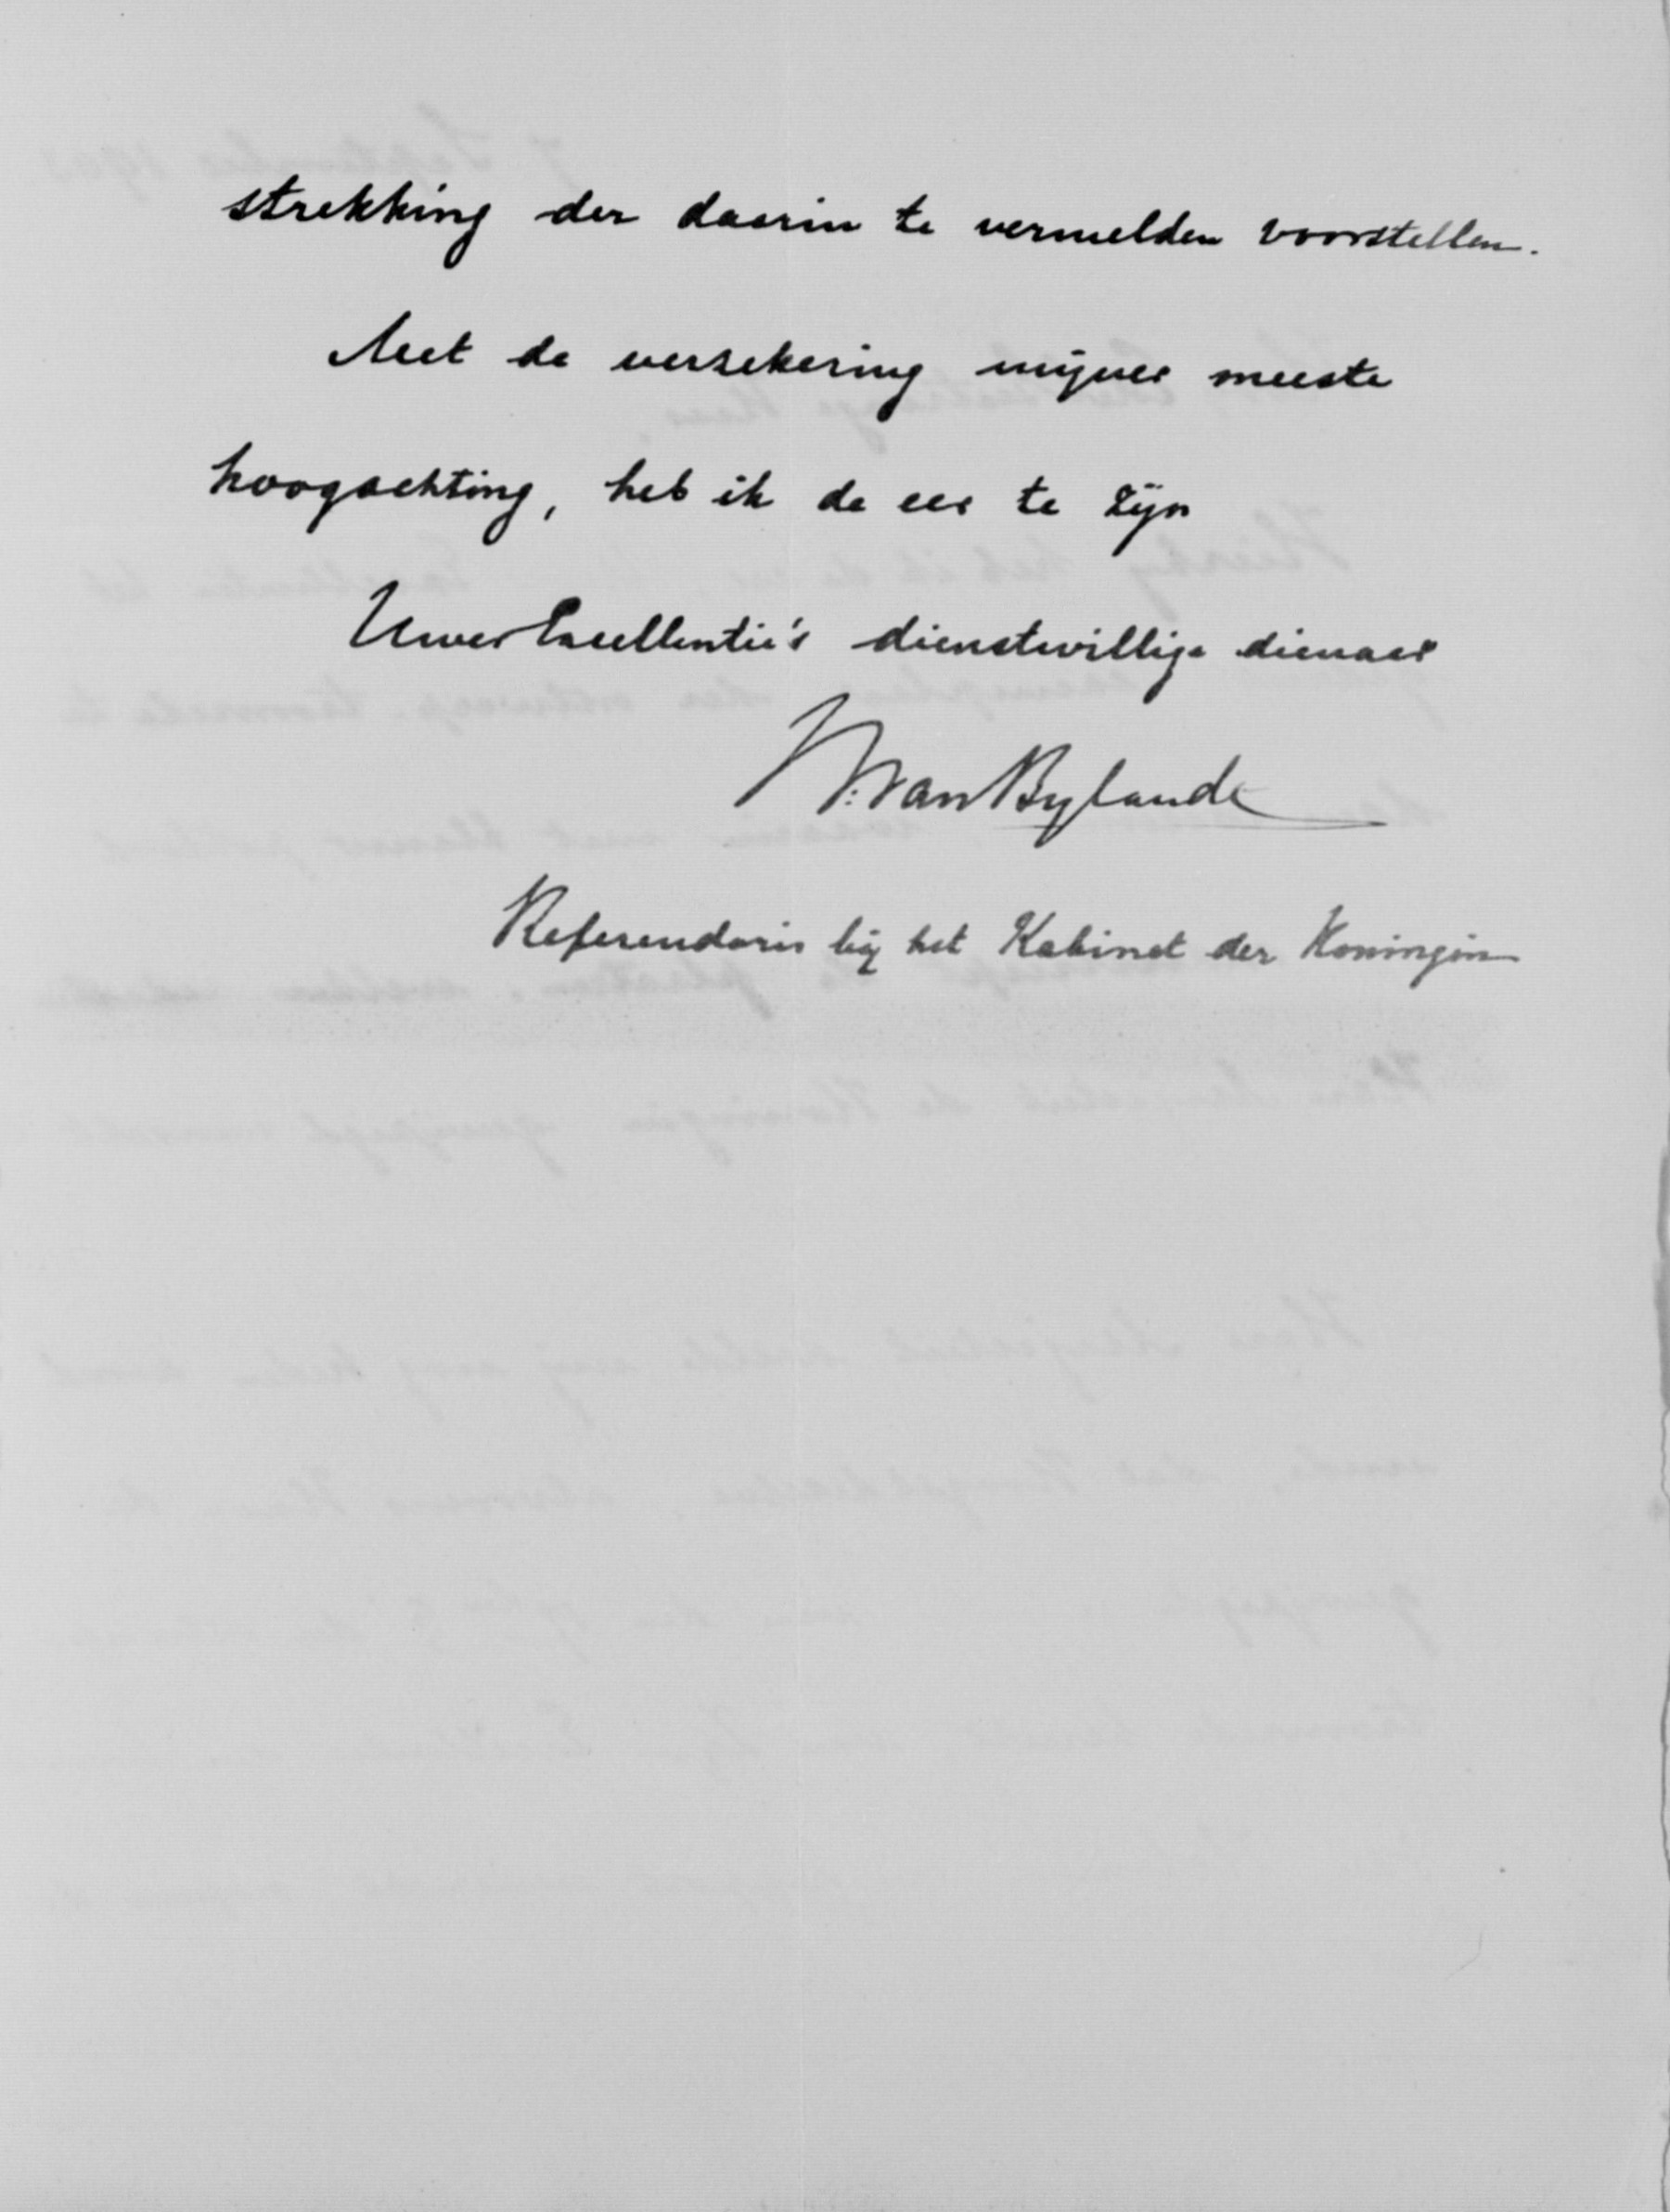 strekking der daarin te vermelden voorstellen.
Met de verzekering mijner meeste
hoogachting, heb ik de eer te zijn
Uwer Excellentie's dienstwillige dienaar
van Bylandt
Referendaris bij het Kabinet der Koningin